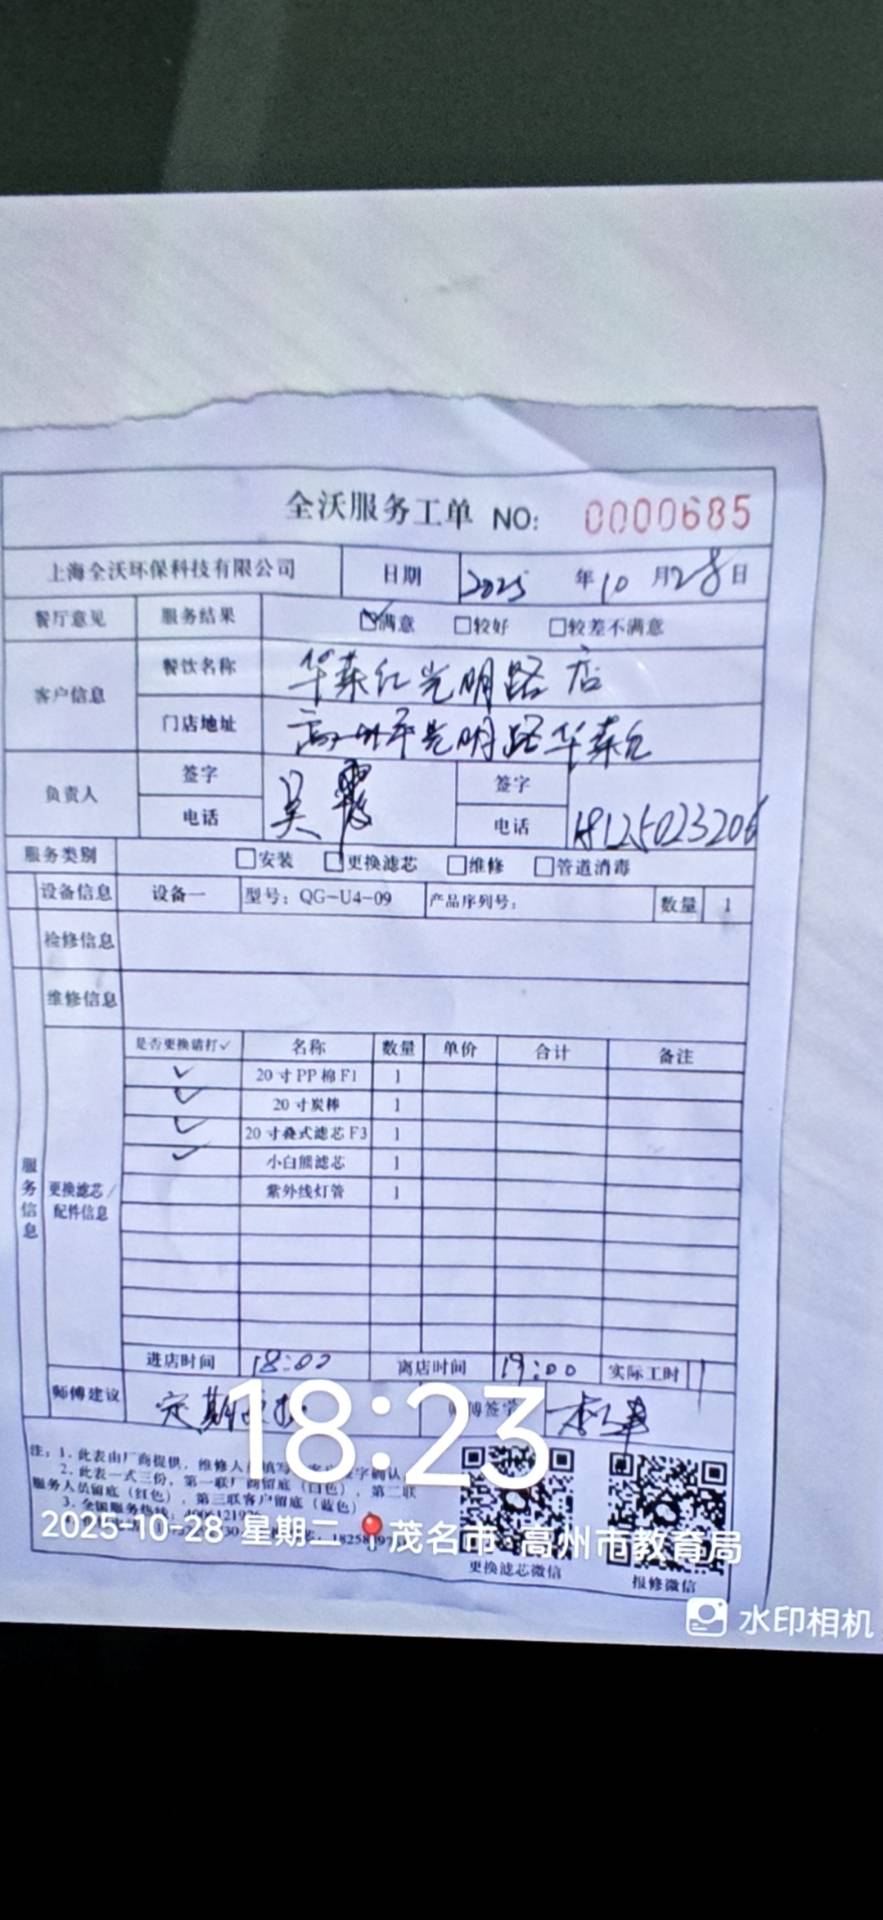 全沃服务工单 NO: 0000685
上海全沃环保科技有限公司 日期 2025 年 10 月 28 日
餐厅意见 服务结果 满意 较好 较差不满意
客户信息 餐饮名称 华莱士光明路店
门店地址 高州市光明路华莱士
负责人 签字 吴霞 签字
电话 电话 18125023206
服务类别 安装 更换滤芯 维修 管道消毒
设备信息 设备一 型号：QG-U4-09 产品序列号： 数量 1
检修信息
维修信息
服务信息
更换滤芯/配件信息
是否更换请打✓ 名称 数量 单价 合计 备注
✓ 20寸PP棉F1 1
✓ 20寸炭棒 1
✓ 20寸叠式滤芯F3 1
✓ 小白熊滤芯 1
紫外线灯管 1
进店时间 18:00 离店时间 19:00 实际工时 1
师傅建议 定期 签字
18:23
注：1. 此表由厂商提供，维修人 填写 字确认
2. 此表一式三份，第一联厂商留底（白色），第二联
服务人员留底（红色），第三联客户留底（蓝色）
3. 全国服务热线：
2025-10-28 星期二 茂名市·高州市教育局
更换滤芯微信 报修微信
水印相机